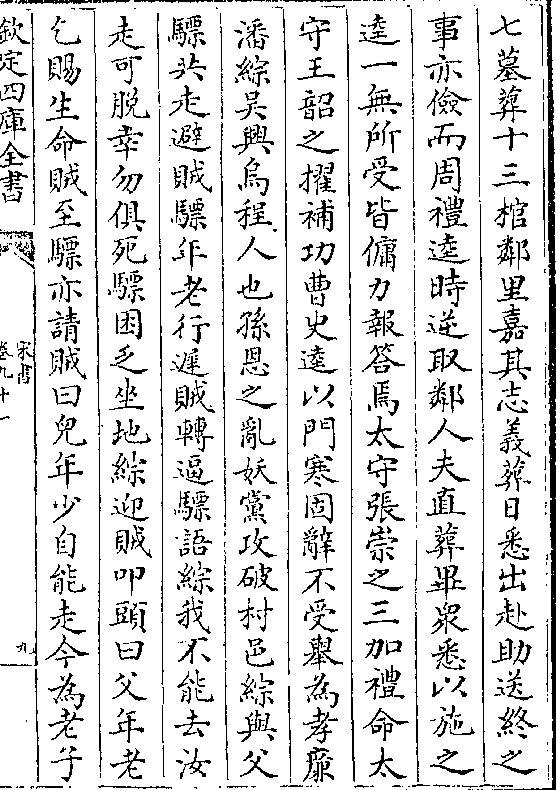 七墓葬十三棺鄰里嘉其志義葬日悉出赴助送終之
事亦儉而周禮逵時逆取鄰人夫直葬畢衆悉以施之
逵一無所受皆傭力報答焉太守張崇之三加禮命太
守王韶之擢補功曹史逵以門寒固辭不受舉為孝廉
潘綜吳興烏程人也孫恩之亂妖黨攻破村邑綜與父
驃共走避賊驃年老行遲賊轉逼驃語綜我不能去汝
走可脫幸勿俱死驃困乏坐地綜迎賊叩頭曰父年老
乞賜生命賊至驃亦請賊曰兒年少自能走今為老子
欽定四庫全書
宋書
卷九十一
九